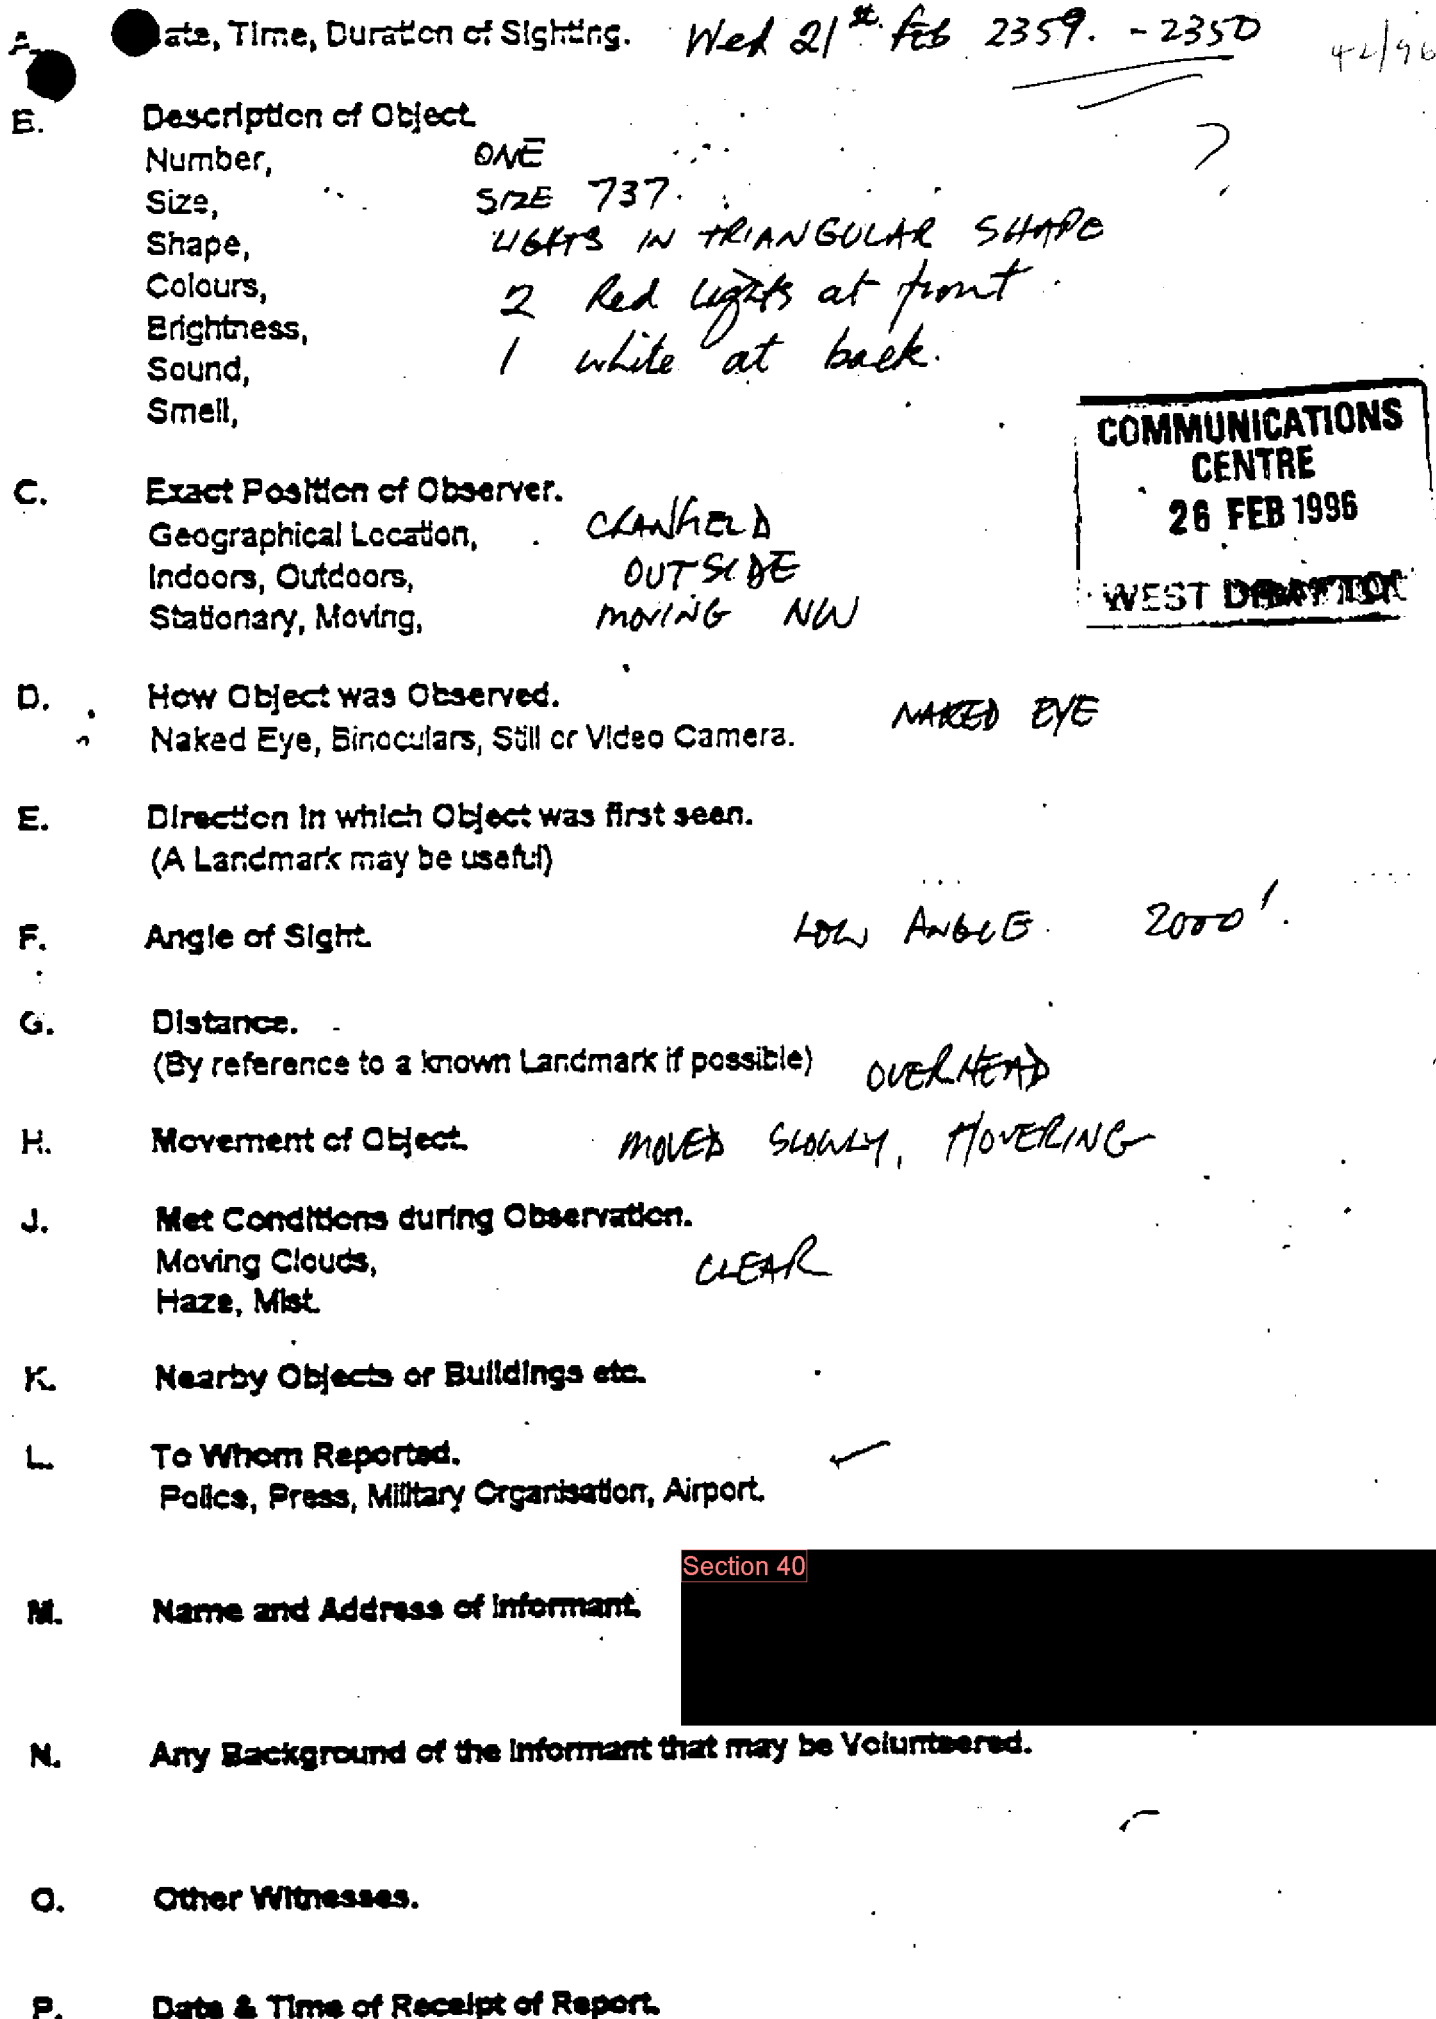 A. Date, Time, Duration of Sighting. Wed 21st. Feb 2359. - 2350
42/96
B. Description of Object.
?
Number, ONE
Size, SIZE 737.
Shape, LIGHTS IN TRIANGULAR SHAPE
Colours, 2 Red lights at front.
Brightness,
Sound, 1 white at back.
Smell,
COMMUNICATIONS
CENTRE
26 FEB 1996
WEST DRAYTON
C. Exact Position of Observer.
Geographical Location, CLANFIELD
Indoors, Outdoors, OUTSIDE
Stationary, Moving, MOVING NW
D. How Object was Observed.
Naked Eye, Binoculars, Still or Video Camera. NAKED EYE
E. Direction in which Object was first seen.
(A Landmark may be useful)
F. Angle of Sight. LOW ANGLE. 2000'.
G. Distance.
(By reference to a known Landmark if possible) OVERHEAD
H. Movement of Object. MOVED SLOWLY, HOVERING
J. Met Conditions during Observation.
Moving Clouds, CLEAR
Haze, Mist.
K. Nearby Objects or Buildings etc.
L. To Whom Reported.
Police, Press, Military Organisation, Airport.
Section 40
M. Name and Address of Informant.
N. Any Background of the Informant that may be Volunteered.
O. Other Witnesses.
P. Date & Time of Receipt of Report.